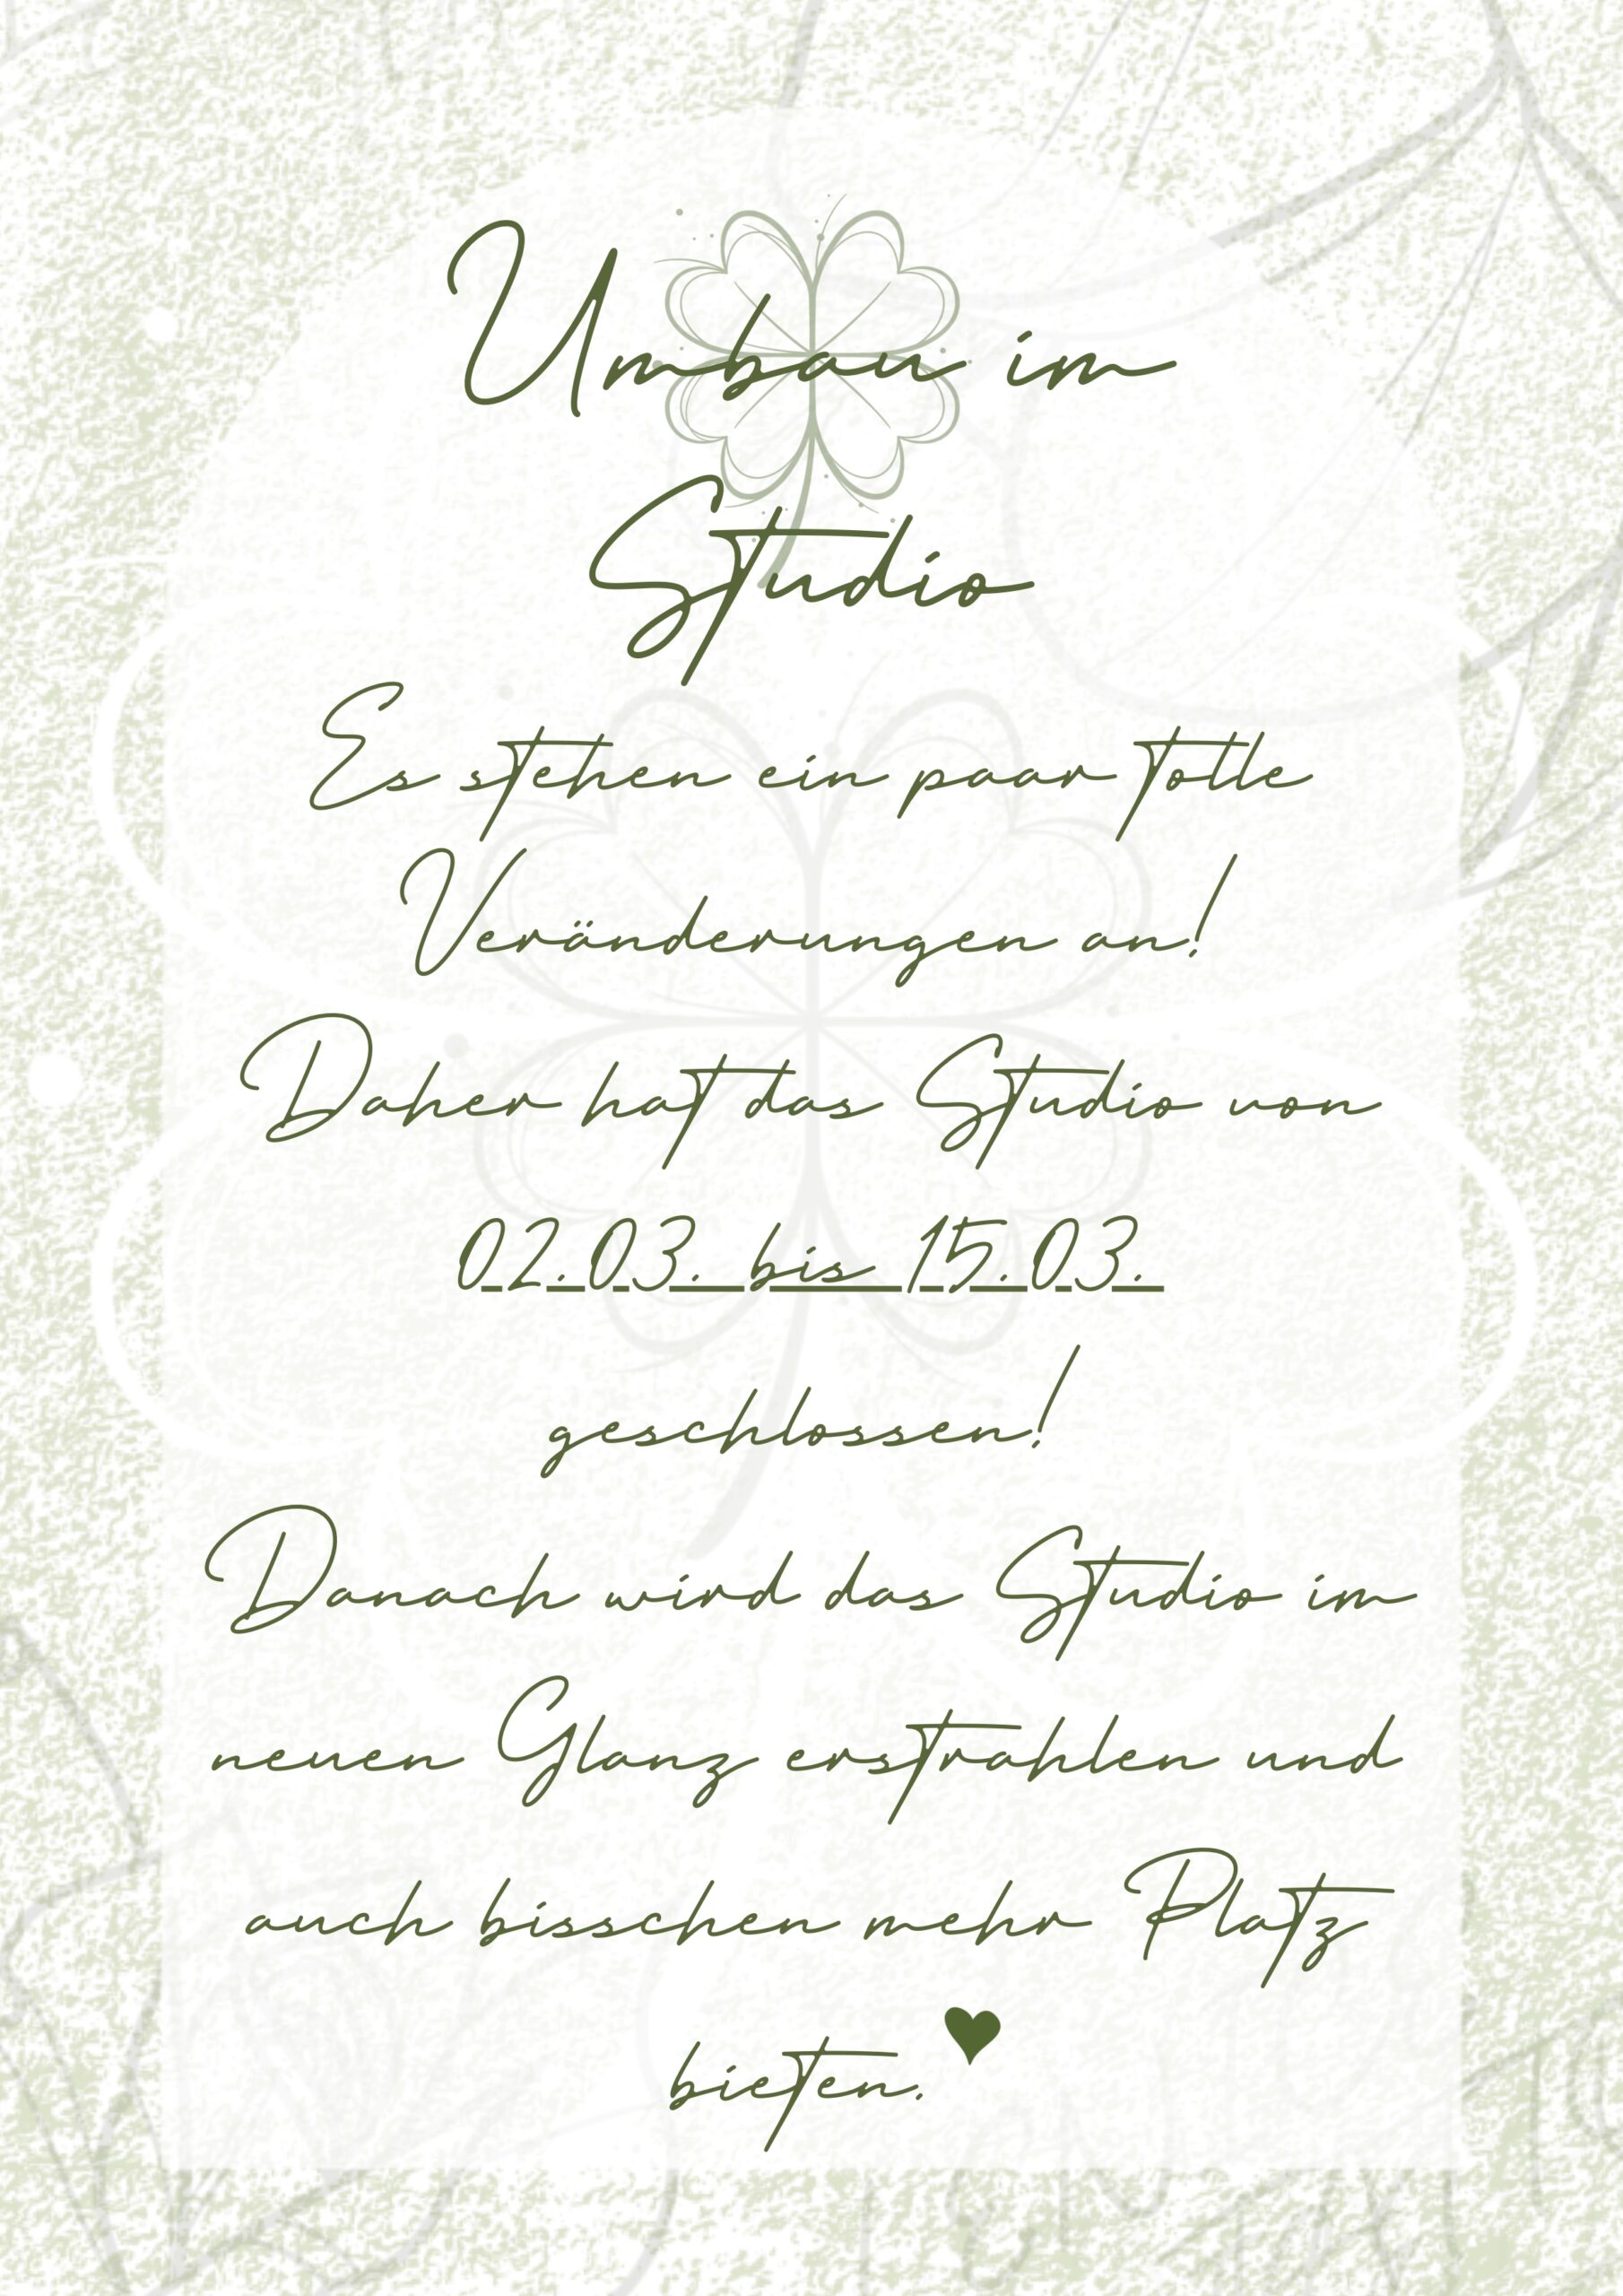 Umbau im
Studio
Es stehen ein paar tolle
Veränderungen an!
Daher hat das Studio von
02.03. bis 15.03.
geschlossen!
Danach wird das Studio im
neuen Glanz erstrahlen und
auch bisschen mehr Platz
bieten. ♥